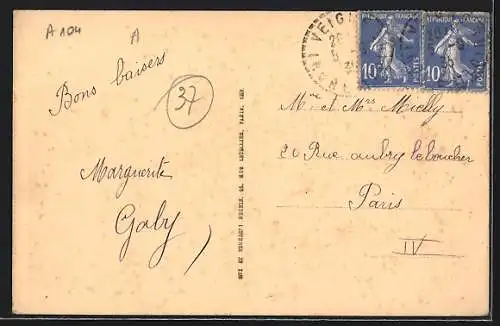 A 104
A
Bons baisers
37
Marguerite
Gaby
VEIGN
RÉPUBLIQUE FRANÇAISE
10c
POSTES
RÉPUBLIQUE FRANÇAISE
10c
POSTES
M. et Mrs Mielly
20 Rue aubry le boucher
Paris
IV